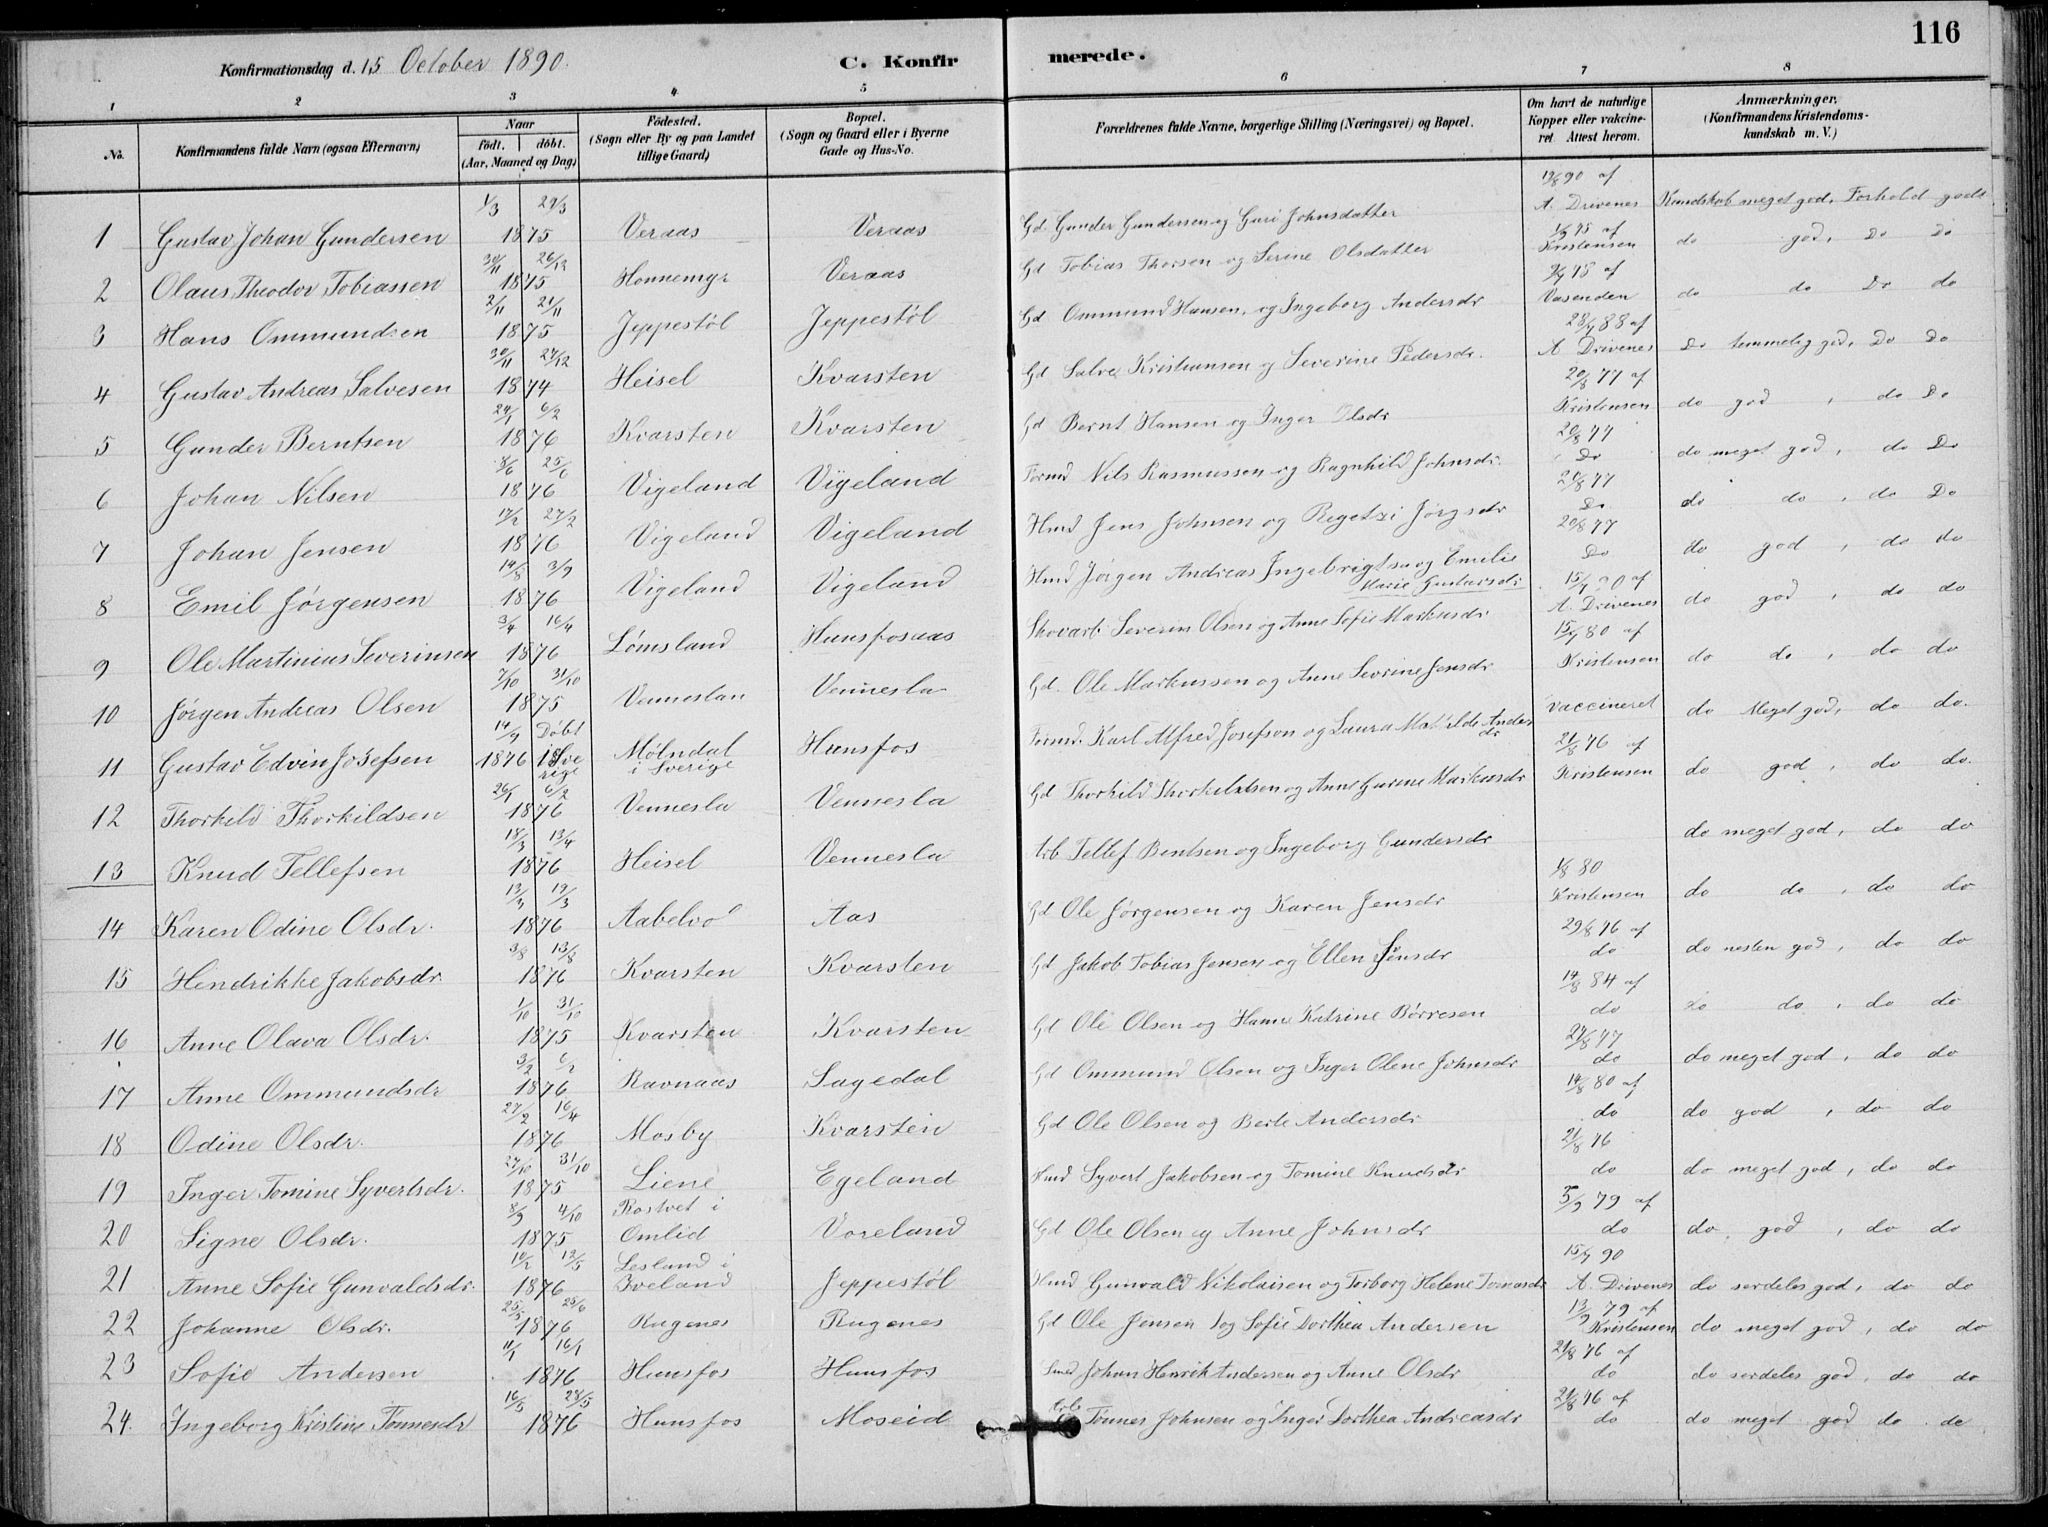 116
Konfirmationsdag d. 15 October 1890.
C. Konfirmerede.
1 2 3 4 5 6 7 8
No. Konfirmandens fulde Navn (ogsaa Efternavn) Naar født. døbt. (Aar, Maaned og Dag) Fødested. (Sogn eller By og paa Landet tillige Gaard) Bopæl. (Sogn og Gaard eller i Byerne Gade og Hus-No. Forældrenes fulde Navne, borgerlige Stilling (Næringsvei) og Bopæl. Om havt de naturlige Kopper eller vakcineret. Attest herom. Anmærkninger. (Konfirmandens Kristendomskundskab m. V.)
1 Gustav Johan Gundersen 1/3 29/3 1875 Veraas Veraas Gd. Gunder Gundersen og Guri Johnsdatter 19/8 90 af A. Drivenes Kundskab meget god, Forhold godt
2 Olaus Theodor Tobiassen 30/11 26/12 1875 Honnemyr Veraas Gd Tobias Thorsen og Serine Olsdatter Kristensen do god, Do Do
3 Hans Ommundsen 2/11 21/11 1875 Jeppestøl Jeppestøl Gd Ommund Hansen, og Ingeborg Andersdr Vasenden do do Do do
4 Gustav Andreas Salvesen 30/11 27/12 1874 Heisel Kvarsten Gd Salve Kristiansen og Severine Pedersdr. 28/7 88 af A Drivenes Do temmelig god, Do Do
5 Gunder Berntsen 29/1 6/2 1876 Kvarsten Kvarsten Gd Bernt Hansen og Inger Olsdr 20/8 77 af Kristensen do god, do Do
6 Johan Nilsen 8/6 25/6 1876 Vigeland Vigeland Formd Nils Rasmussen og Ragnhild Johnsdr. 20/8 77 Do do meget god, do Do
7 Johan Jensen 17/2 27/2 1876 Vigeland Vigeland Hmd Jens Johnsen og Regetzi Jørgsdr 20/8 77 Do do do, do Do
8 Emil Jørgensen 14/8 3/9 1876 Vigeland Vigeland Hmd Jørgen Andreas Ingebrigtsn og Emelie Marie Gustavsdr 20/8 77 Do do god, do do
9 Ole Martinius Severinsen 3/4 16/4 1876 Lømsland Hunsfosaas Skovarb. Severin Olsen og Anne Sofie Markusdr A. Drivenes do god, do do
10 Jørgen Andreas Olsen 7/10 31/10 1875 Venneslan Vennesla Gd. Ole Markussen og Anne Severine Jensdr 15/9 80 af Kristensen do do, do do
11 Gustav Edvin Josefsen 14/9 1876 Døbt i Sverige Mølndal i Sverige Hunsfos Formd. Karl Alfred Josefson og Laura Matilde Andersdr vaccineret do Meget god, do do.
12 Thorkild Thorkildsen 26/1 6/2 1876 Vennesla Vennesla Gd Thorkild Thorkildsen og Anne Gurine Markusdr 21/8 76 af Kristensen do god, do do.
13 Knud Tellefsen 18/3 13/4 1876 Heisel Vennesla Arb Tellef Bentsen og Ingeborg Gundersdr do meget god, do do
14 Karen Odine Olsdr. 19/3 1876 Aabelvø Aas Gd Ole Jørgensen og Karen Jensdr 1/8 80 Kristensen do do, do do
15 Hendrikke Jakobsdr. 3/8 13/8 1876 Kvarsten Kvarsten Gd Jakob Tobias Jensen og Ellen Jensdr 29/8 76 af do do nesten god, do do
16 Anne Olava Olsdr. 1/10 31/10 1875 Kvarsten Kvarsten Gd Ole Olsen og Hanne Katrine Børresen 14/8 84 af do do do, do do
17 Anne Ommundsdr 3/2 6/2 1876 Ravnaas Sagedal Gd Ommund Olsen og Inger Olene Johnsdr 21/8 77 do do meget god, do do
18 Odine Olsdr. 27/2 16/4 1876 Mosby Kvarsten Gd Ole Olsen og Berte Andersdr 14/8 80 af do do god, do do
19 Inger Tomine Syvertsdr. 27/10 31/10 1875 Liene Egeland Hmd Syvert Jakobsen og Tomine Knudsdr 21/8 76 do do meget god, do do
20 Signe Olsdr. 8/9 4/10 1875 Rostvet i Omlid Voreland Gd Ole Olsen og Anne Johnsdr 5/9 79 af do do god, do do
21 Anne Sofie Gunvaldsdr. 10/2 13/5 1876 Lesland i Iveland Jeppestøl Hmd Gunvald Nikolaisen og Torborg Helene Tomasdr 15/7 90 A. Drivenes do serdeles god, do do
22 Johanne Olsdr. 25/5 25/6 1876 Rugenes Rugenes Gd Ole Jensen og Sofie Dorthea Andersen 13/9 79 af Kristensen do meget god, do do
23 Sofie Andersen 11/1 16/1 1876 Hunsfos Hunsfos Smed Johan Henrik Andersen og Anne Olsdr 21/8 76 af do do serdeles god, do do
24. Ingeborg Kristine Tønnesdr 16/5 28/5 1876 Hunsfos Moseid Arb Tønnes Johnsen og Inger Dorthea Andreasdr 21/8 76 af do do meget god do do